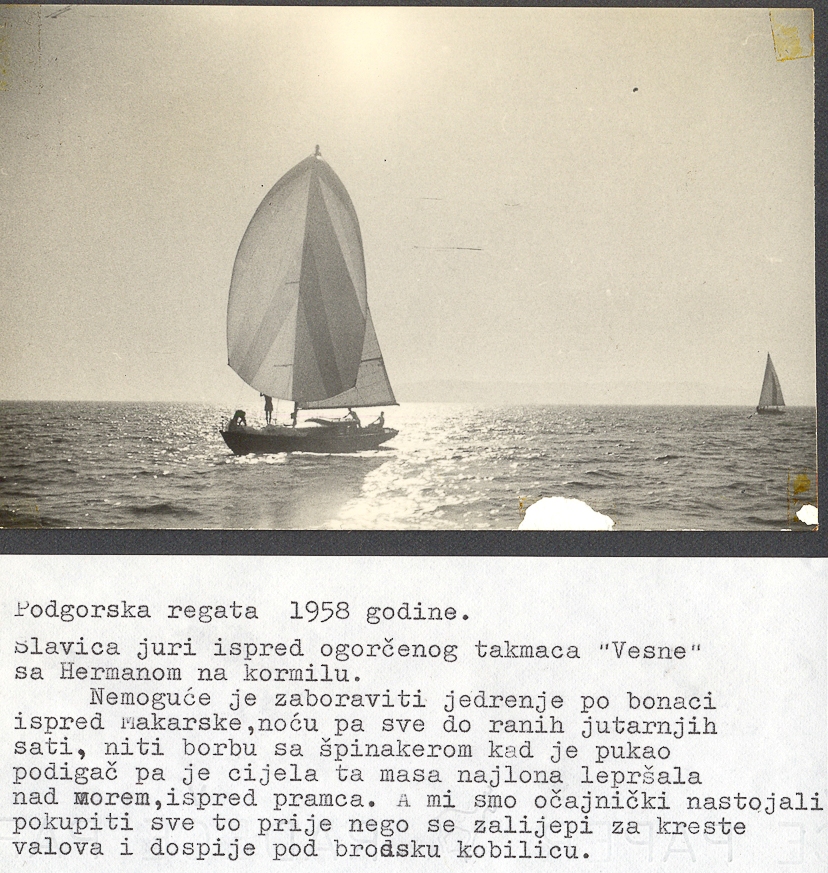 Podgorska regata 1958 godine.
Slavica juri ispred ogorčenog takmaca "Vesne"
sa Hermanom na kormilu.
Nemoguće je zaboraviti jedrenje po bonaci
ispred Makarske,noću pa sve do ranih jutarnjih
sati, niti borbu sa špinakerom kad je pukao
podigač pa je cijela ta masa najlona lepršala
nad morem,ispred pramca. A mi smo očajnički nastojali
pokupiti sve to prije nego se zalijepi za kreste
valova i dospije pod brodsku kobilicu.